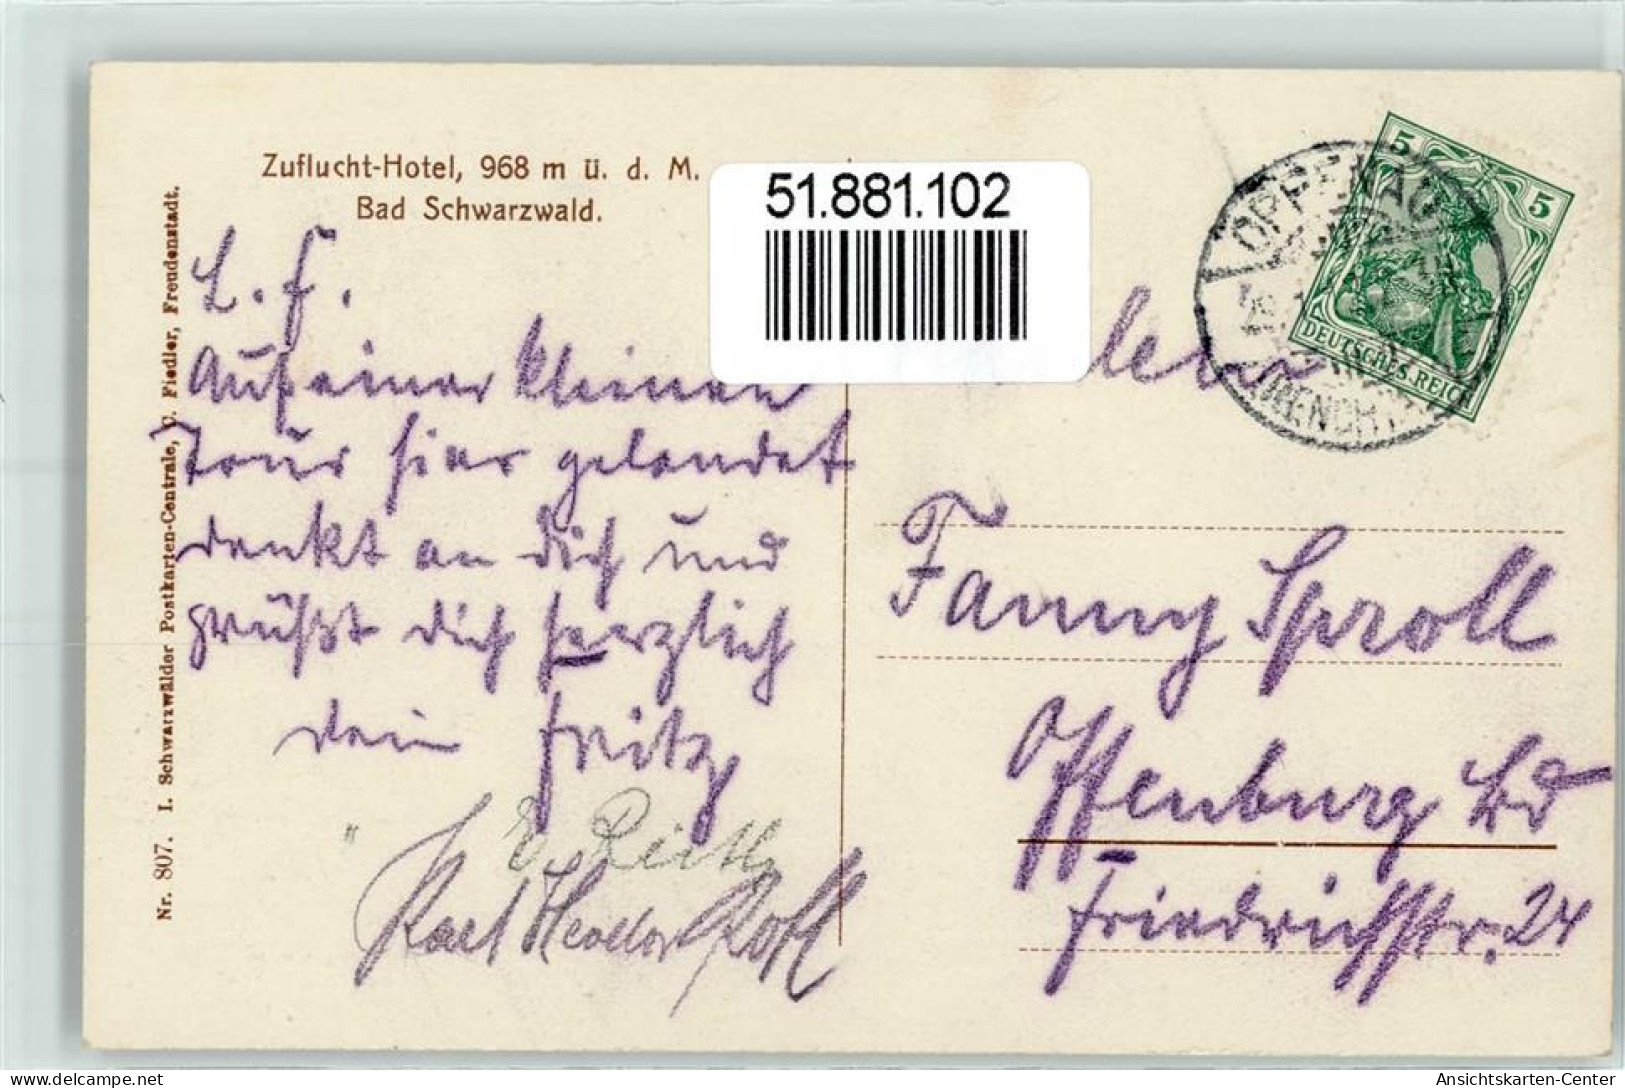 Zuflucht-Hotel, 968 m ü. d. M.
Bad Schwarzwald.
51.881.102
L. F.
Auf einer kleinen
Tour hier gelandet
denkt an dich und
grüßt dich herzlich
dein Fritz
Karl Theodor
Nr. 807. I. Schwarzwälder Postkarten-Centrale, C. Fiedler, Freudenstadt.
OPPENAU
5
5
DEUTSCHES REICH
Fanny Sproll
Offenburg Bd
Friedrichstr. 24
delcampe.net
Ansichtskarten-Center